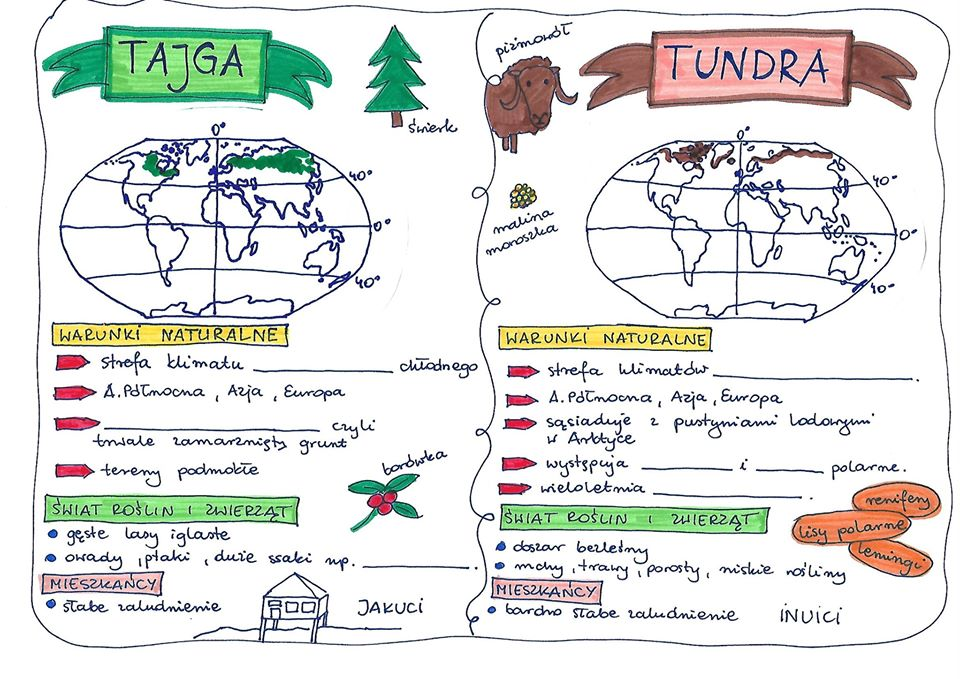 TAJGA
świerk
0°
40°
0°
40°
WARUNKI NATURALNE
strefa klimatu ____________ chłodnego
A. Północna, Azja, Europa
____________ czyli
trwale zamarznięty grunt
tereny podmokłe
borówka
ŚWIAT ROŚLIN I ZWIERZĄT
gęste lasy iglaste
owady, ptaki, duże ssaki np. ____________.
MIESZKAŃCY
słabe zaludnienie
JAKUCI
piżmowół
malina
moroszka
TUNDRA
0°
40°
0°
40°
WARUNKI NATURALNE
strefa klimatów ____________.
A. Północna, Azja, Europa
sąsiaduje z pustyniami lodowymi
w Arktyce
występuja ________ i ________ polarne.
wieloletnia ____________.
renifery
lisy polarne
lemingi
ŚWIAT ROŚLIN I ZWIERZĄT
obszar bezleśny
mchy, trawy, porosty, niskie rośliny
MIESZKAŃCY
bardzo słabe zaludnienie
INUICI